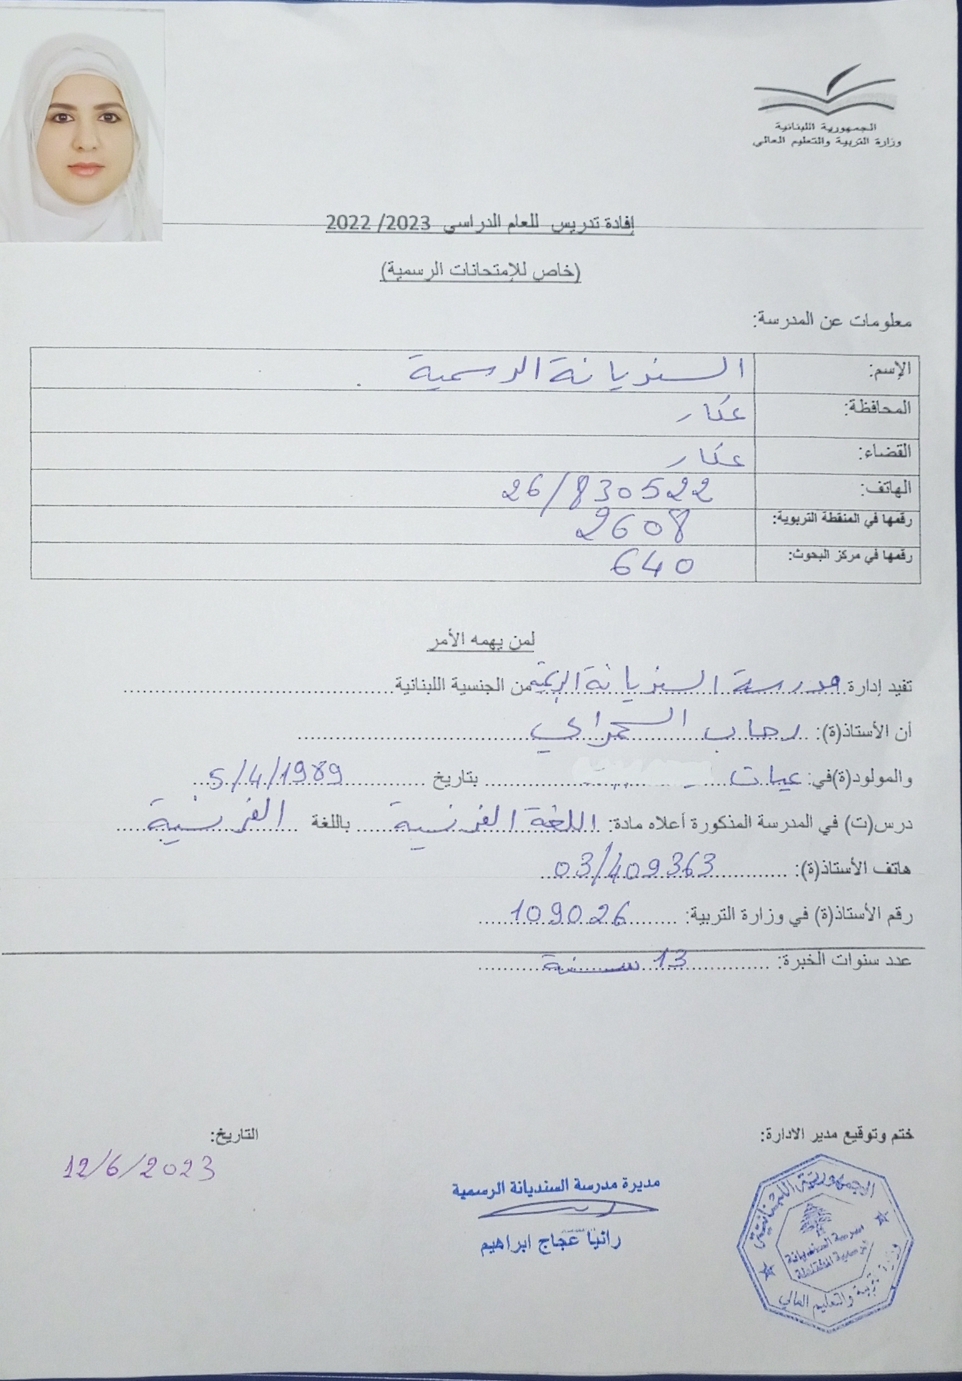 الجمهورية اللبنانية
وزارة التربية والتعليم العالي
إفادة تدريس للعام الدراسي 2023/ 2022
(خاص للإمتحانات الرسمية)
معلومات عن المدرسة:
الإسم: السنديانة الرسمية
المحافظة: عكار
القضاء: عكار
الهاتف: 26/830522
رقمها في المنقطة التربوية: 2608
رقمها في مركز البحوث: 640
لمن يهمه الأمر
تفيد إدارة مدرسة السنديانة الرسمية من الجنسية اللبنانية
أن الأستاذ(ة): رحاب السحمراني
والمولود(ة)في: عيات بتاريخ 5/4/1989
درس(ت) في المدرسة المذكورة أعلاه مادة: اللغة الفرنسية باللغة الفرنسية
هاتف الأستاذ(ة): 03/409363
رقم الأستاذ(ة) في وزارة التربية: 109026
عدد سنوات الخبرة: 13 سنة
ختم وتوقيع مدير الادارة:
التاريخ:
12/6/2023
مديرة مدرسة السنديانة الرسمية
رانيا عجاج ابراهيم
الجمهورية اللبنانية
مدرسة السنديانة
الرسمية المختلطة
وزارة التربية والتعليم العالي